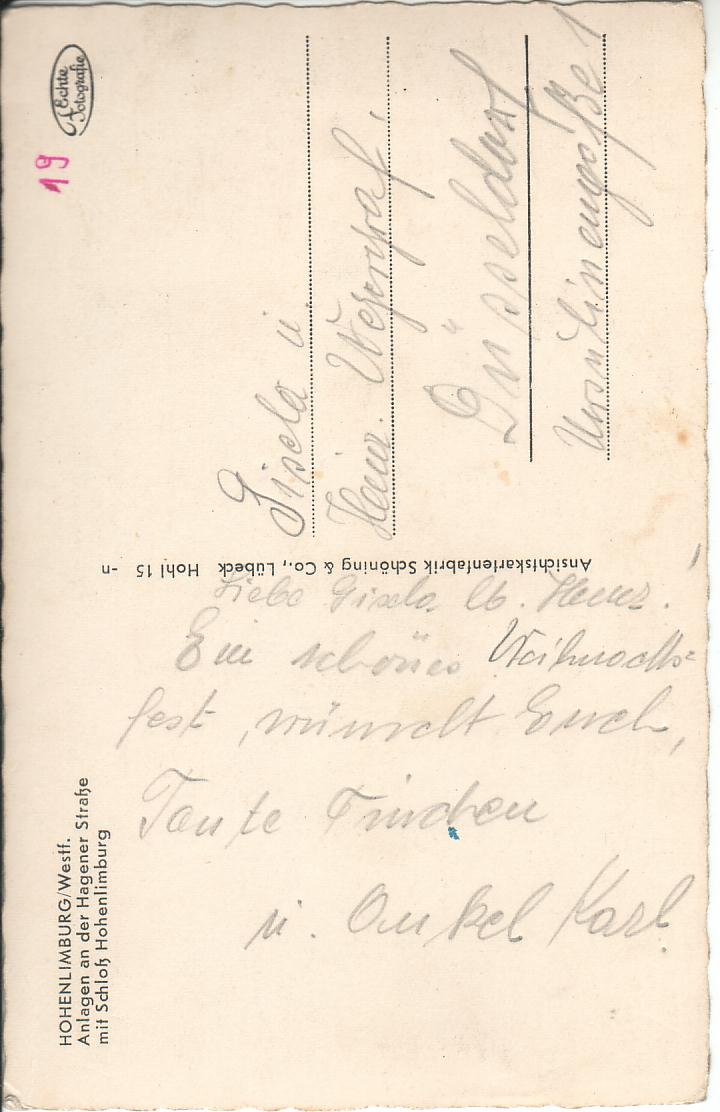 HOHENLIMBURG/Westf.
Anlagen an der Hagener Straße
mit Schloß Hohenlimburg
Liebe Gisela lb. Heinz!
Ein schönes Weihnachts=
fest, wünscht Euch,
Tante Finchen
u. Onkel Karl.
Ansichtskartenfabrik Schöning & Co., Lübeck Hohl 15 -n
Echte
Fotografie
19
Gisela u.
Heinz
Düsseldorf
1